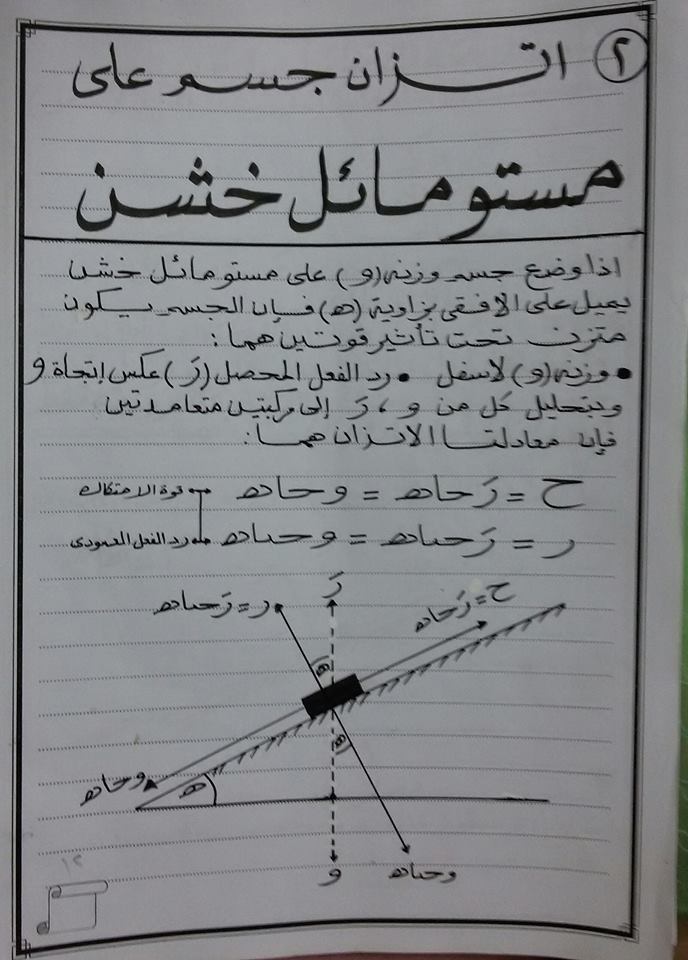 ٢ اتزان جسم على
مستو مائل خشن
اذا وضع جسم وزنه (و) على مستو مائل خشن
يميل على الافقى بزاوية (ھ) فإن الجسم يكون
متزن تحت تأثير قوتين هما :
• وزنه (و) لاسفل • رد الفعل المحصل (رَ) عكس إتجاة و
وبتحليل كل من و ، رَ إلى مركبتين متعامدتين
فإن معادلتا الاتزان هما :
ح = رَ حا ھ = و حا ھ قوة الاحتكاك
ر = رَ حتا ھ = و حتا ھ رد الفعل العمودى
ر = رَ حتا ھ
رَ
ح = رَ حا ھ
ھ
ھ
و حا ھ
ھ
و
و حتا ھ
١٢